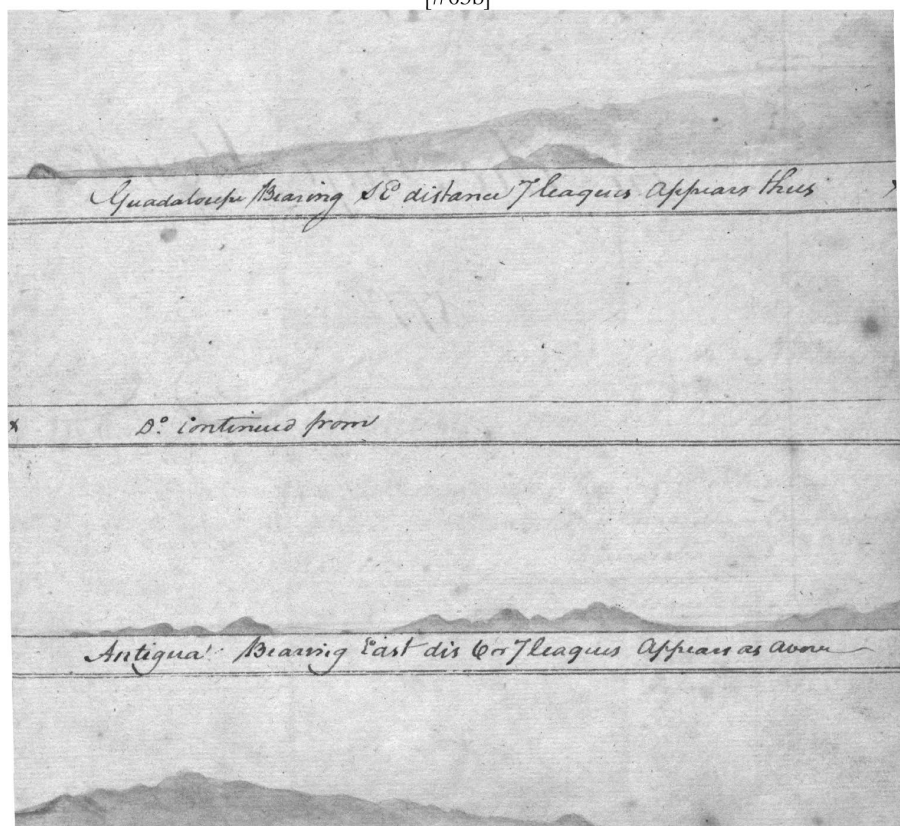 [#65b]
Guadaloupe Bearing SE distance 7 leagues Appears thus x
x Do. Continued from
Antigua Bearing East dis 6 or 7 leagues Appears as above